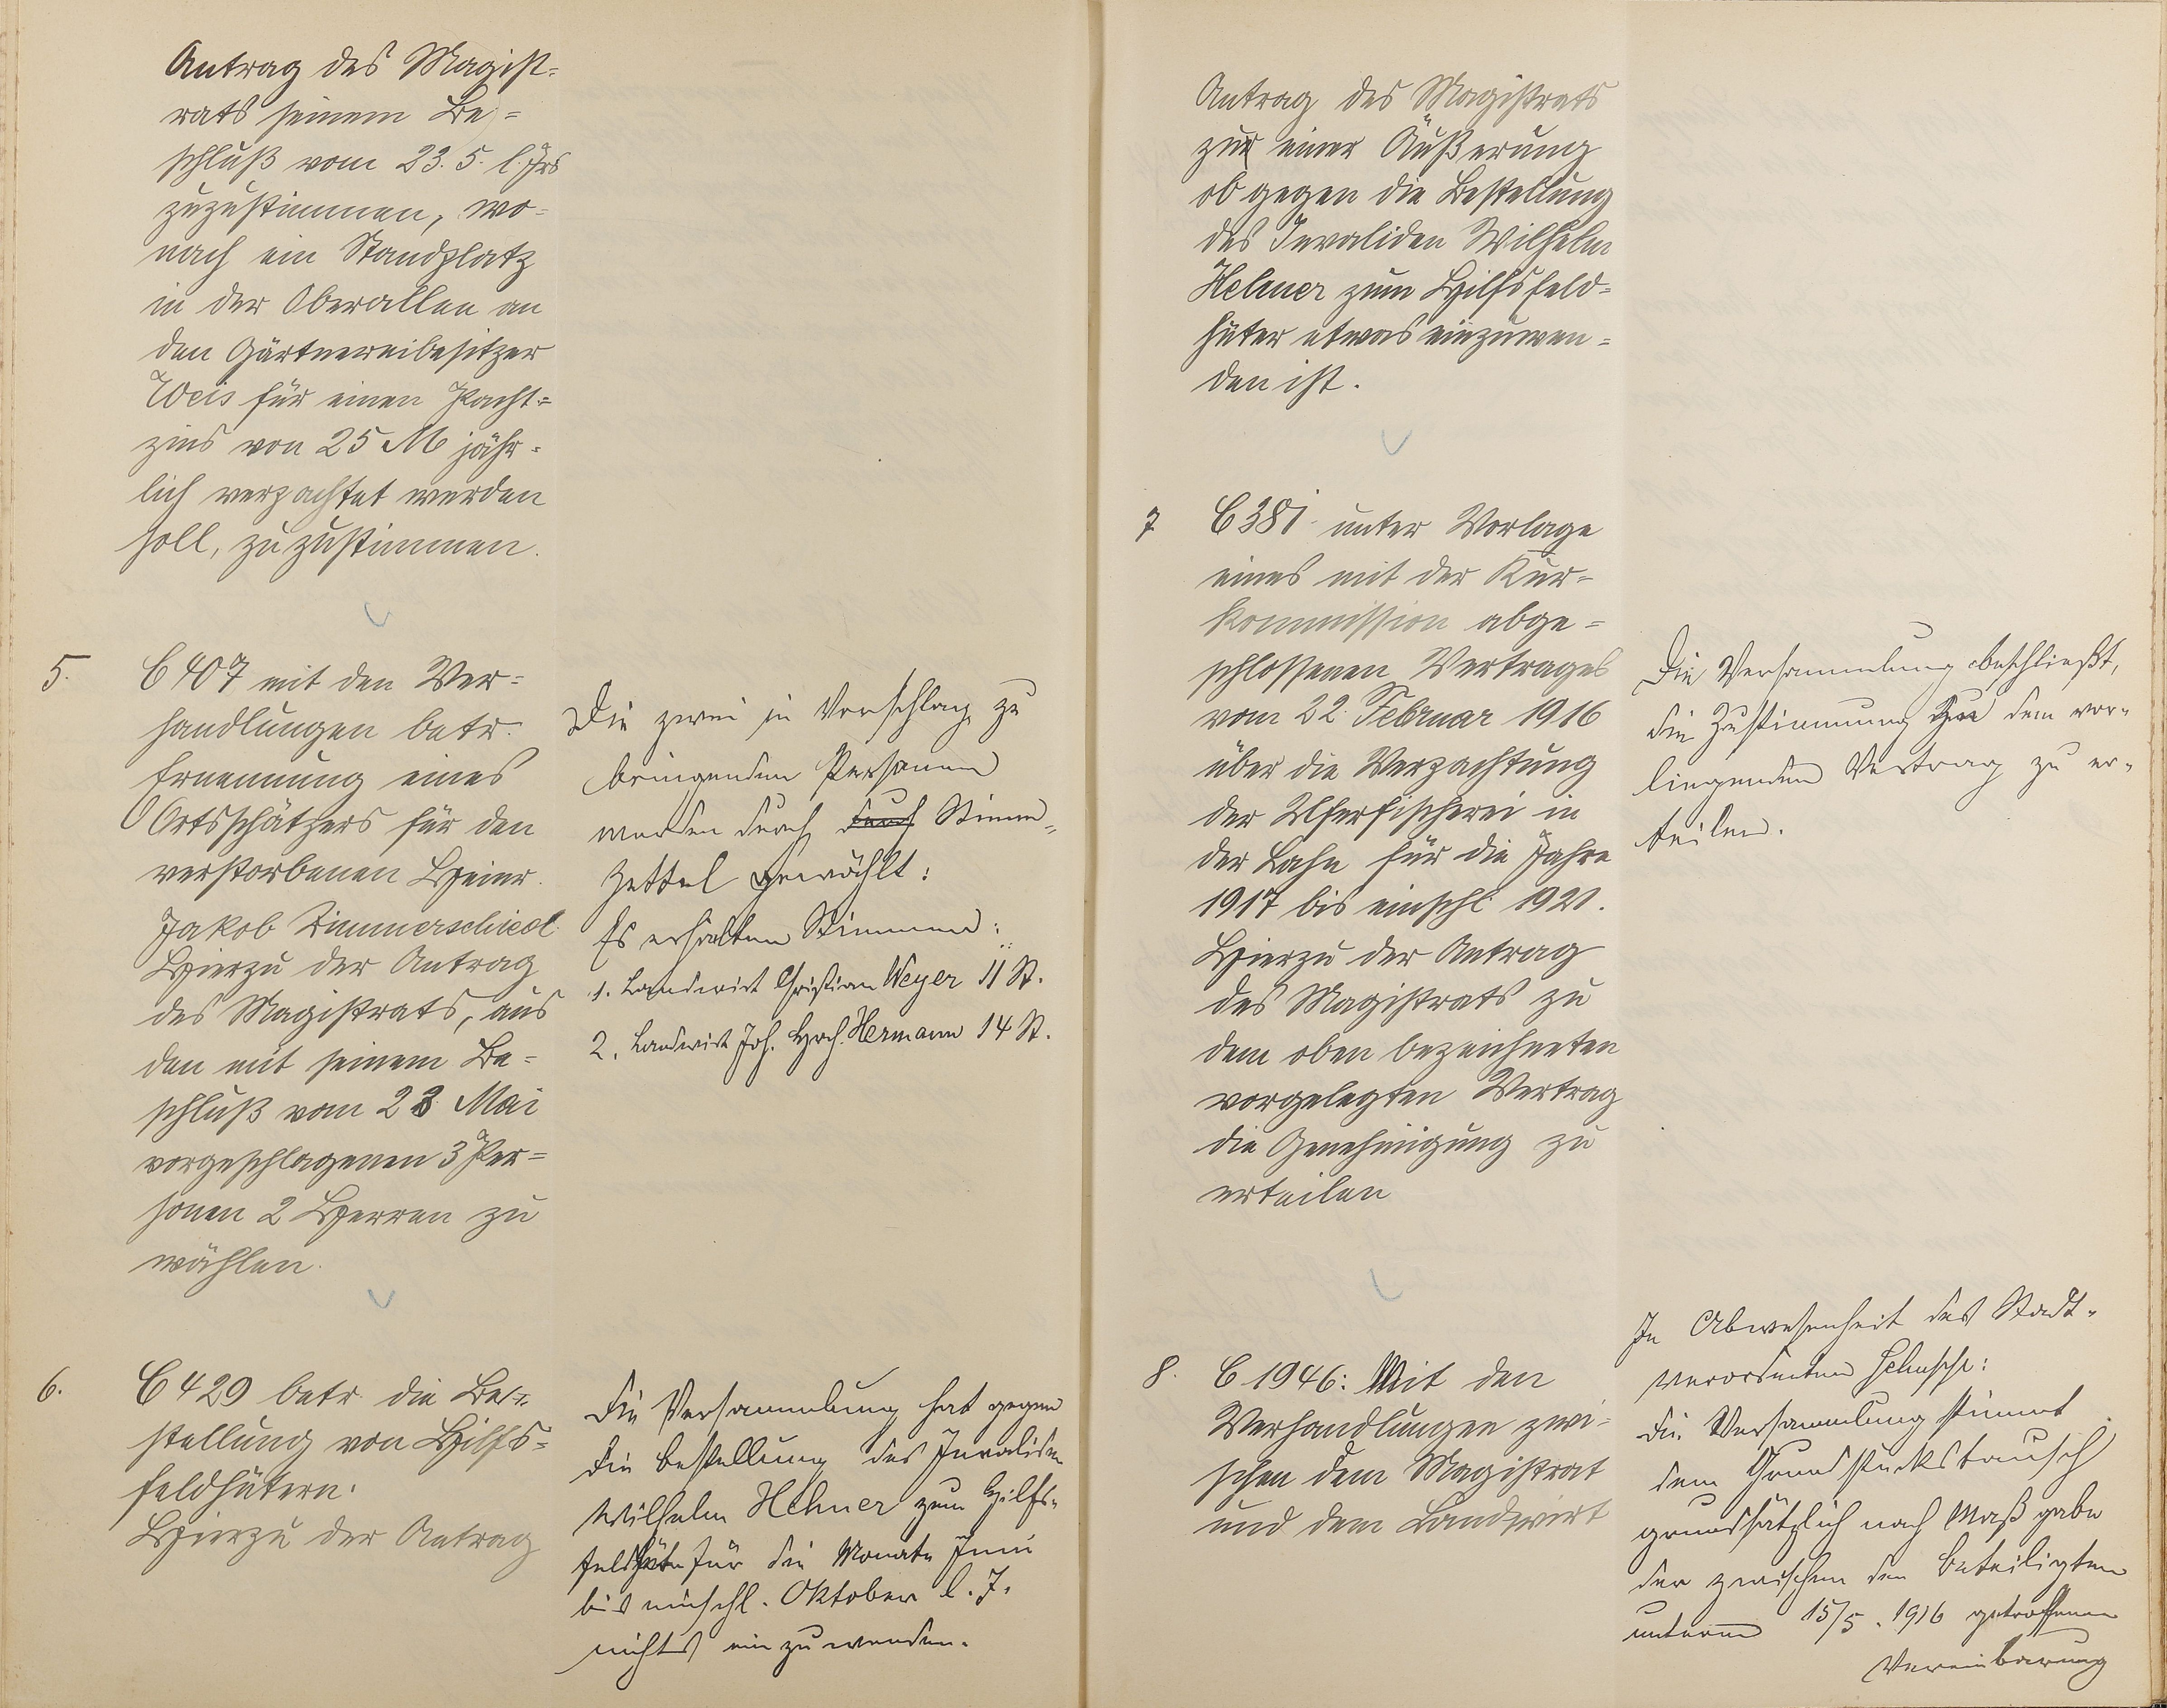 Antrag des Magist-
rats seinem Be-
schluß vom 23. 5. l. Jrs
zuzustimmen, wo-
nach ein Standplatz
in der Oberallee an
den Gärtnereibesitzer
Weis für einen Pacht-
zins von 25 M jähr-
lich verpachtet werden
soll, zuzustimmen.
5. C 407 mit den Ver-
handlungen betr.
Ernennung eines
Ortsschätzers für den
verstorbenen Heinr.
Jakob Zimmerschied
Hierzu der Antrag
des Magistrats, aus
den mit seinem Be-
schluß vom 23 Mai
vorgeschlagenen 3 Per-
sonen 2 Herren zu
wählen.
Die zwei in Vorschlag zu
bringenden Personen
werden durch durch Stimm-
zettel gewählt:
Es erhalten Stimmen:
1. Landwirt Christian Weyer 11 St.
2. Landwirt Joh. Hch. Hermann 14 St.
6. C 429 betr. die Be-
stellung von Hilfs-
feldhütern.
Hierzu der Antrag
Die Versammlung hat gegen
die Bestellung des Invaliden
Wilhelm Hehner zum Hilfs-
feldhüter für die Monate Juni
bis einschl. Oktober l. J.
nichts einzuwenden.
Antrag des Magistrats
zur einer Äußerung
ob gegen die Bestellung
des Invaliden Wilhelm
Hehner zum Hilfsfeld-
hüter etwas einzuwen-
den ist.
7 C 381 unter Vorlage
eines mit der Kur-
kommission abge-
schlossenen Vertrages
vom 22. Februar 1916
über die Verpachtung
der Uferfischerei in
der Lahn für die Jahre
1917 bis einschl. 1921.
Hierzu der Antrag
des Magistrats zu
dem oben bezeichneten
vorgelegten Vertrag
die Genehmigung zu
erteilen
Die Versammlung beschließt,
die Zustimmung zu dem vor-
liegenden Vertrag zu er-
teilen.
8. C 1946: Mit den
Verhandlungen zwi-
schen dem Magistrat
und dem Landwirt
In Abwesenheit des Stadt-
verordneten
Die Versammlung stimmt
dem Grundstückstausch
grundsätzlich nach Maßgabe
der zwischen den Beteiligten
unterm 15/5. 1916 getroffenen
Vereinbarung